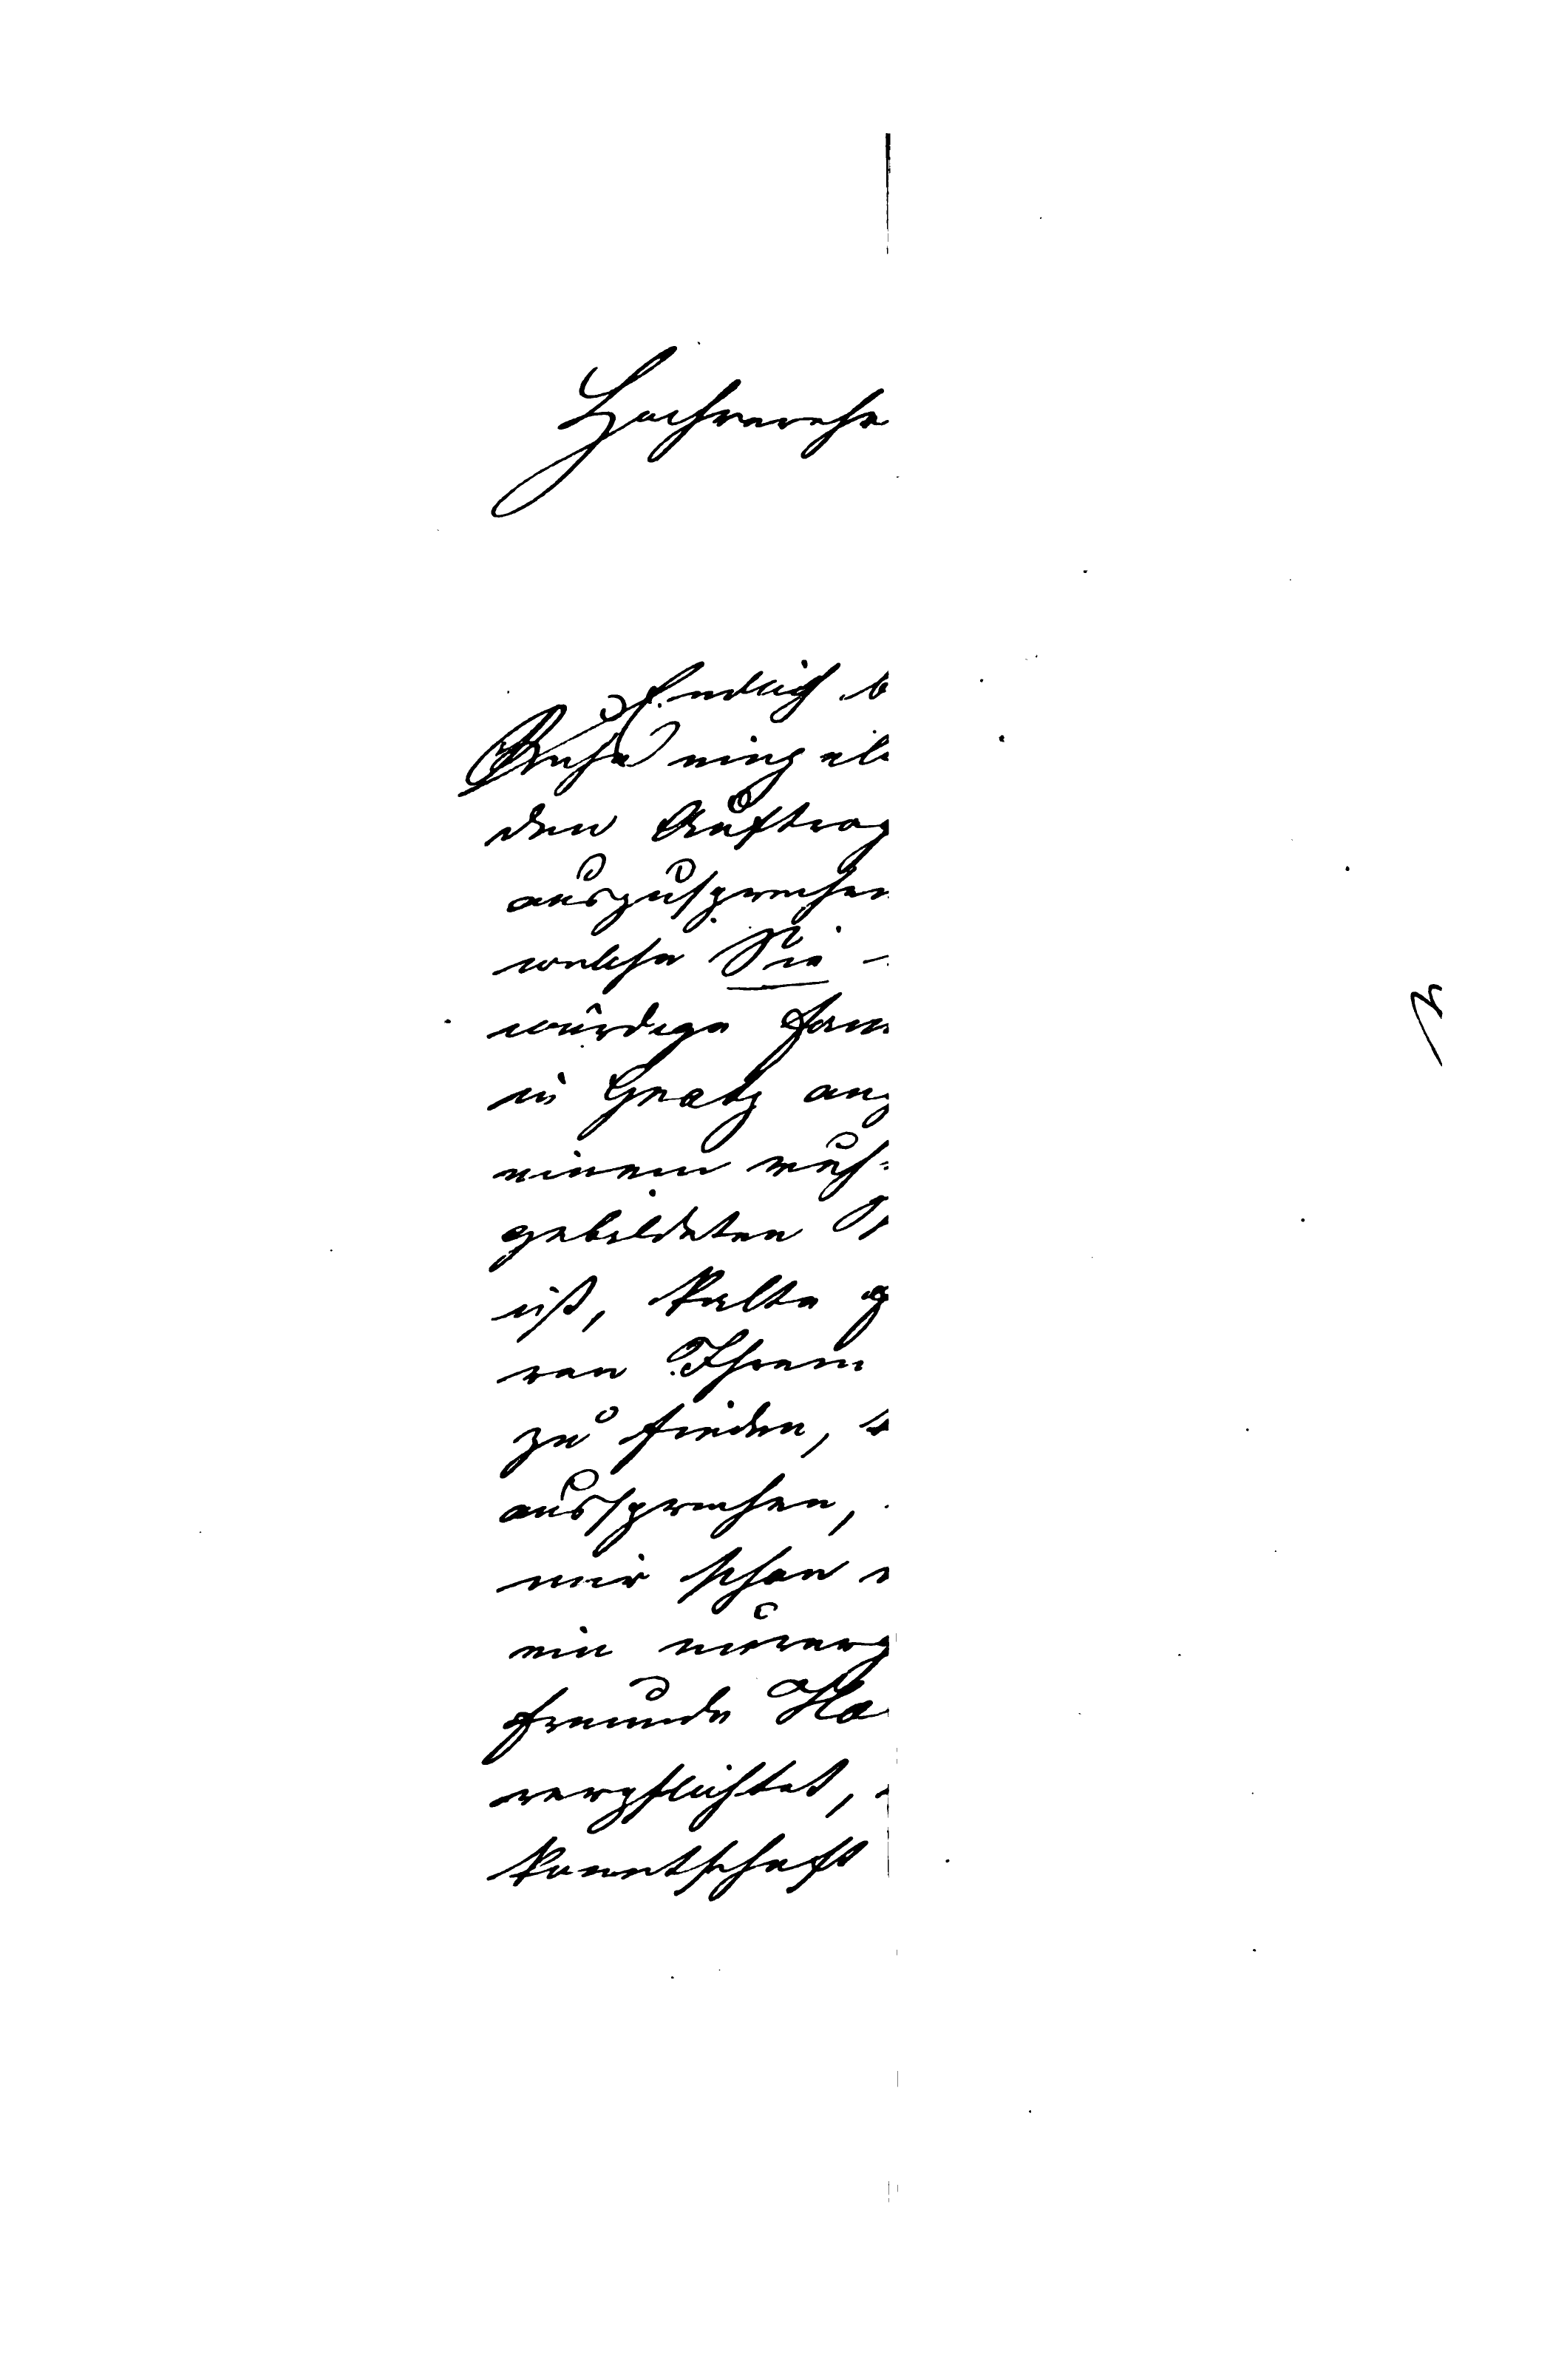 Hochverehr
Endlich b
Ruhe eingele
den Auftrag
auszusprechen
welche Sie
würdige Fam
in Gratz ang
einem
gebildeten
ist, Kalte g
von Ihrem
zu finden,
aussprechen,
mir schon
ein unverg
Freunde Ha
verpflichtet,
kanntschaft